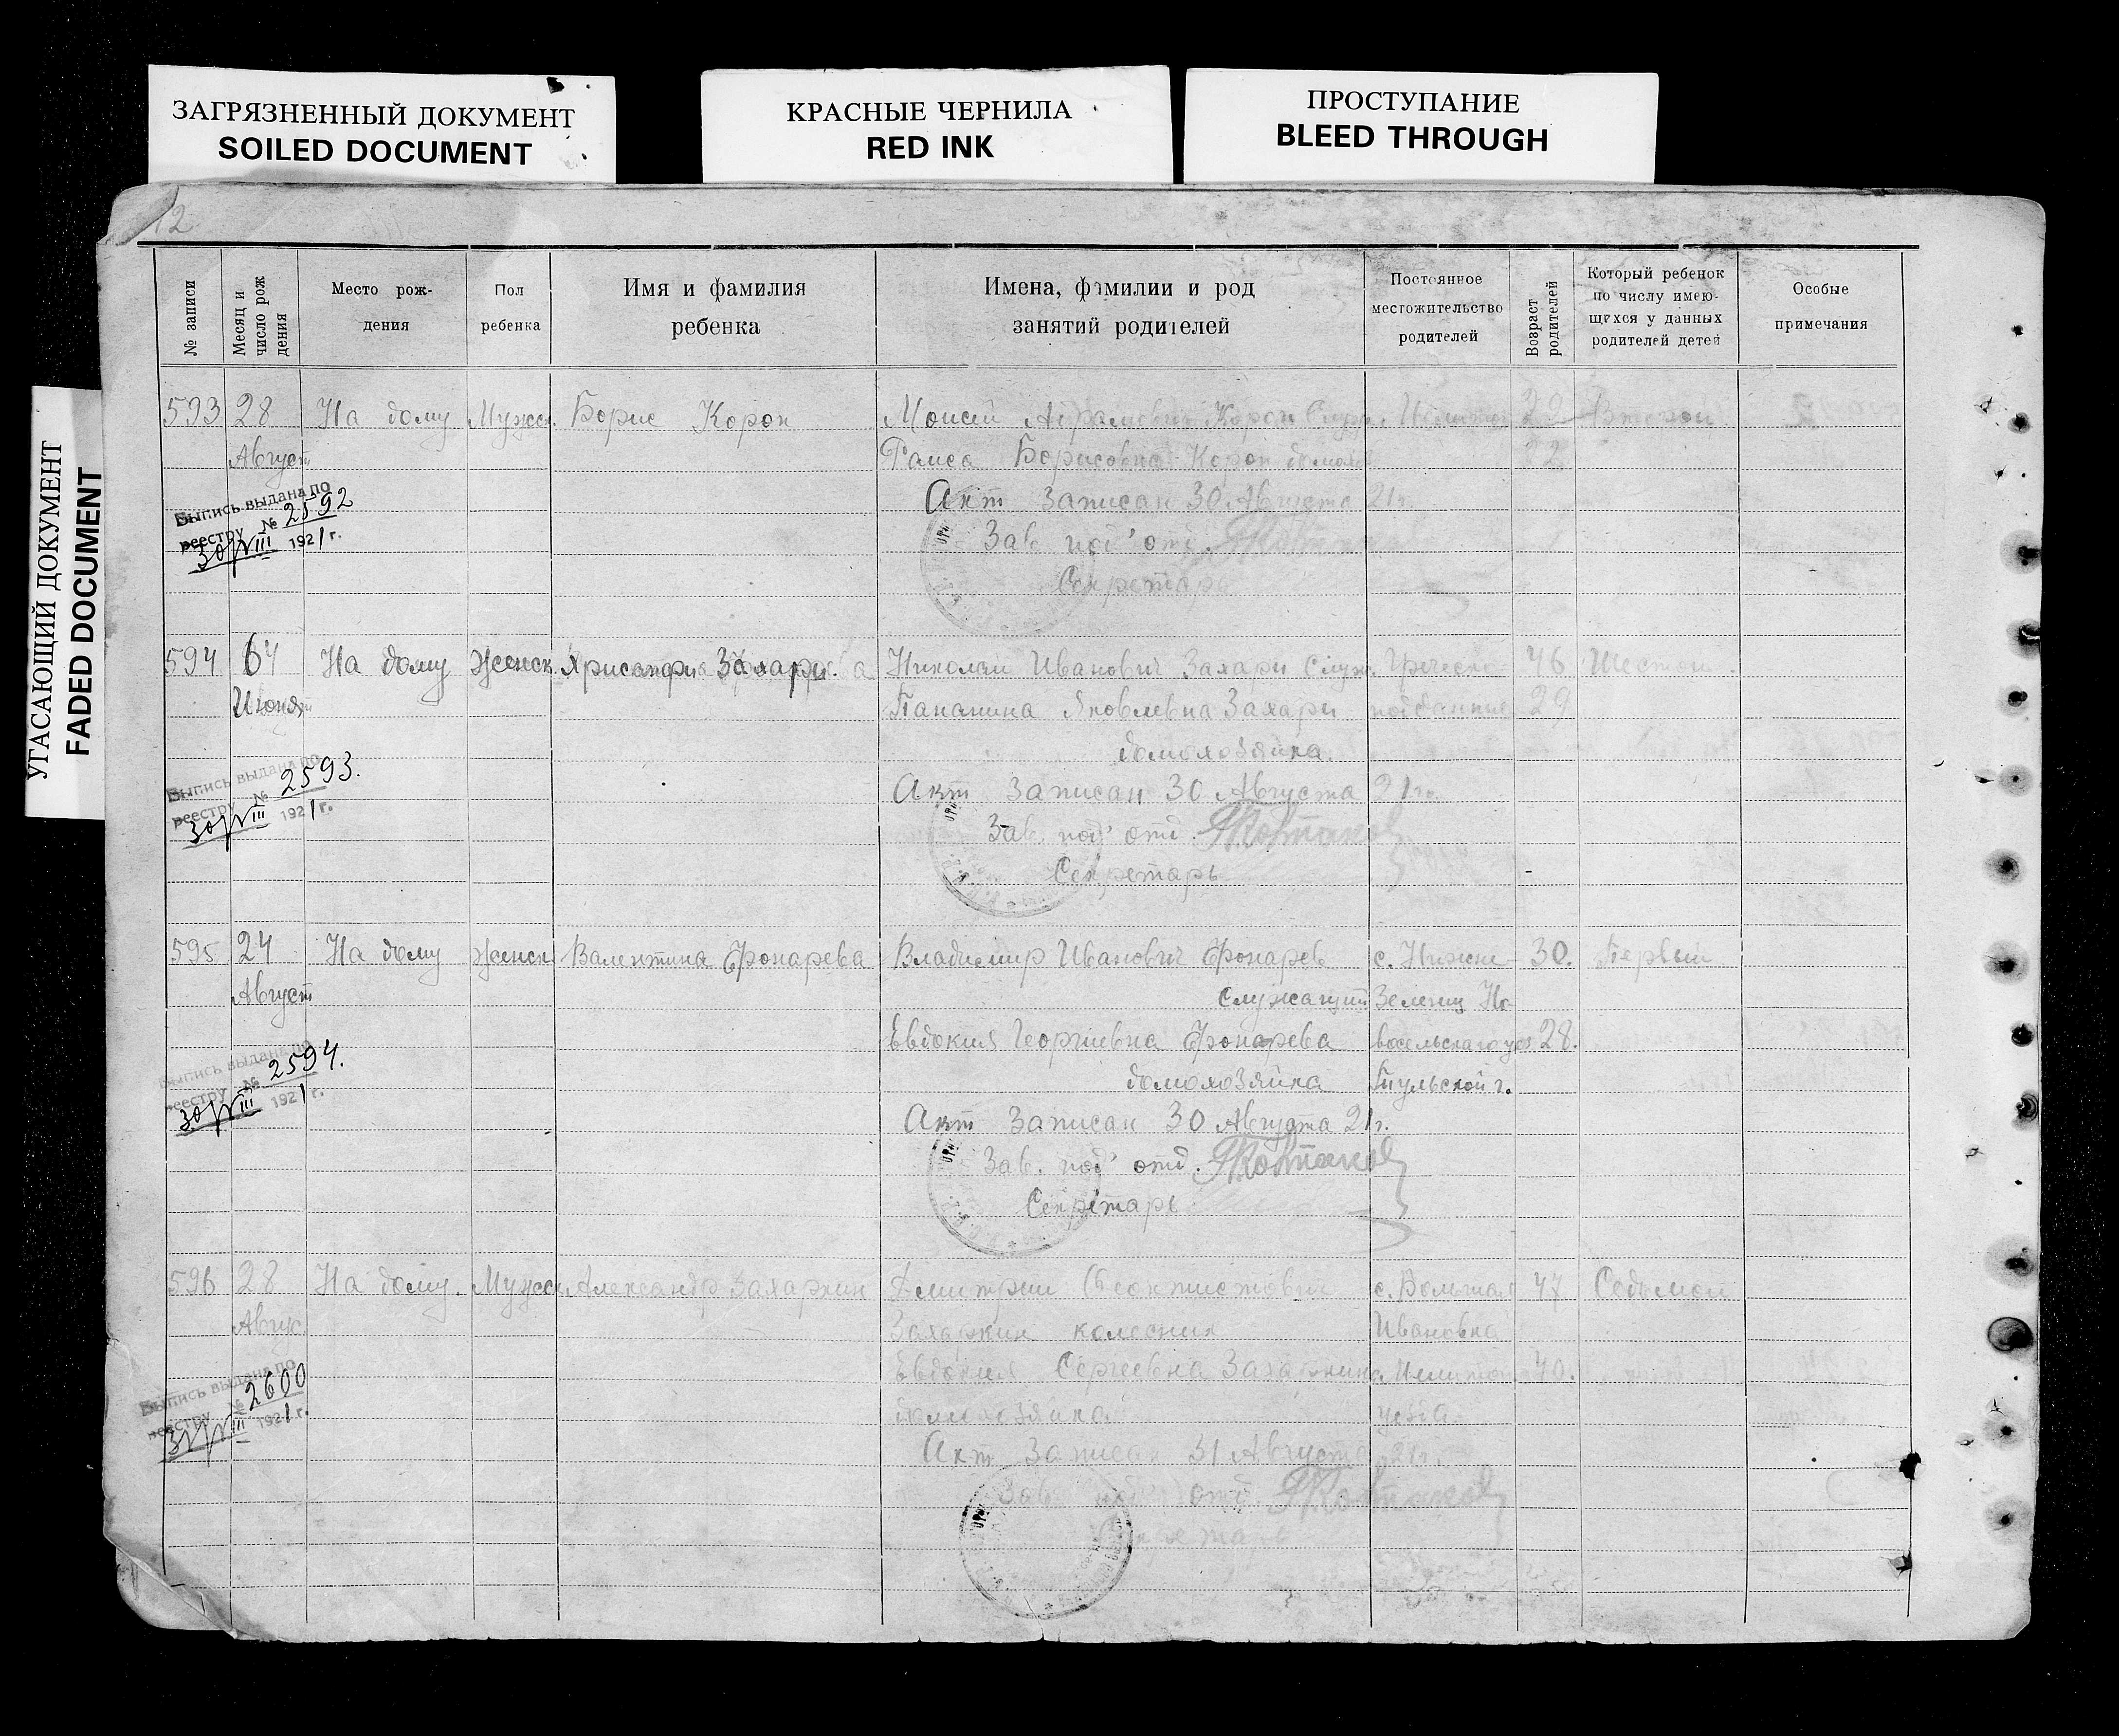 ЗАГРЯЗНЕННЫЙ ДОКУМЕНТ
SOILED DOCUMENT
КРАСНЫЕ ЧЕРНИЛА
RED INK
ПРОСТУПАНИЕ
BLEED THROUGH
УГАСАЮЩИЙ ДОКУМЕНТ
FADED DOCUMENT
12
№ записи
Месяц и число рождения
Место рож-
дения
Пол
ребенка
Имя и фамилия
ребенка
Имена, фамилии и род
занятий родителей
Постоянное
местожительство
родителей
Возраст
родителей
Который ребенок
по числу имею-
щихся у данных
родителей детей
Особые
примечания
593 28 На дому Мужск. Борис Корон Моисей Абрамович Корон Служ. 29 Второй
Август Раиса Борисовна Корон домохоз
Выпись выдана по
реестру № 2592
30/VIII 1921 г.
Акт записан 30 Августа 21 г.
Зав. под'отд.
Секретарь
594 На дому Женск. Хрисанфи Захари. Николай Иванович Захари Служ. Греческо- 46 Шестой.
Июня Яковлевна Захари подданные 29
домохозяйка.
Выпись выдана по
реестру № 2593.
30/VIII 1921 г.
Акт записан 30 Августа 21 г.
Зав. под' отд.
Секретарь
595 24 На дому Женск. Валентина Фонарева Владимир Иванович Фонарев с. Нижне- 30. Первый
Август служащий Зеленец Но-
Евдокия Георгиевна Фонарева восельскаго уез 28.
домохозяйка Тульской г.
Выпись выдана по
реестру № 2594.
30/VIII 1921 г.
Акт записан 30 Августа 21 г.
Зав. под' отд.
Секретарь
596 28 На дому. Мужск. Александр Захаркин Дмитрий Феоктистович с. Большая 47 Седьмой
Авгус. Захаркин колесник Ивановка
Евдокия Сергеевна Захаркина 40.
домохозяйка уезда
Выпись выдана по
реестру № 2600
31/VIII 1921 г.
Акт записан 31 Августа 21 г.
Зав. под' отд.
Секретарь